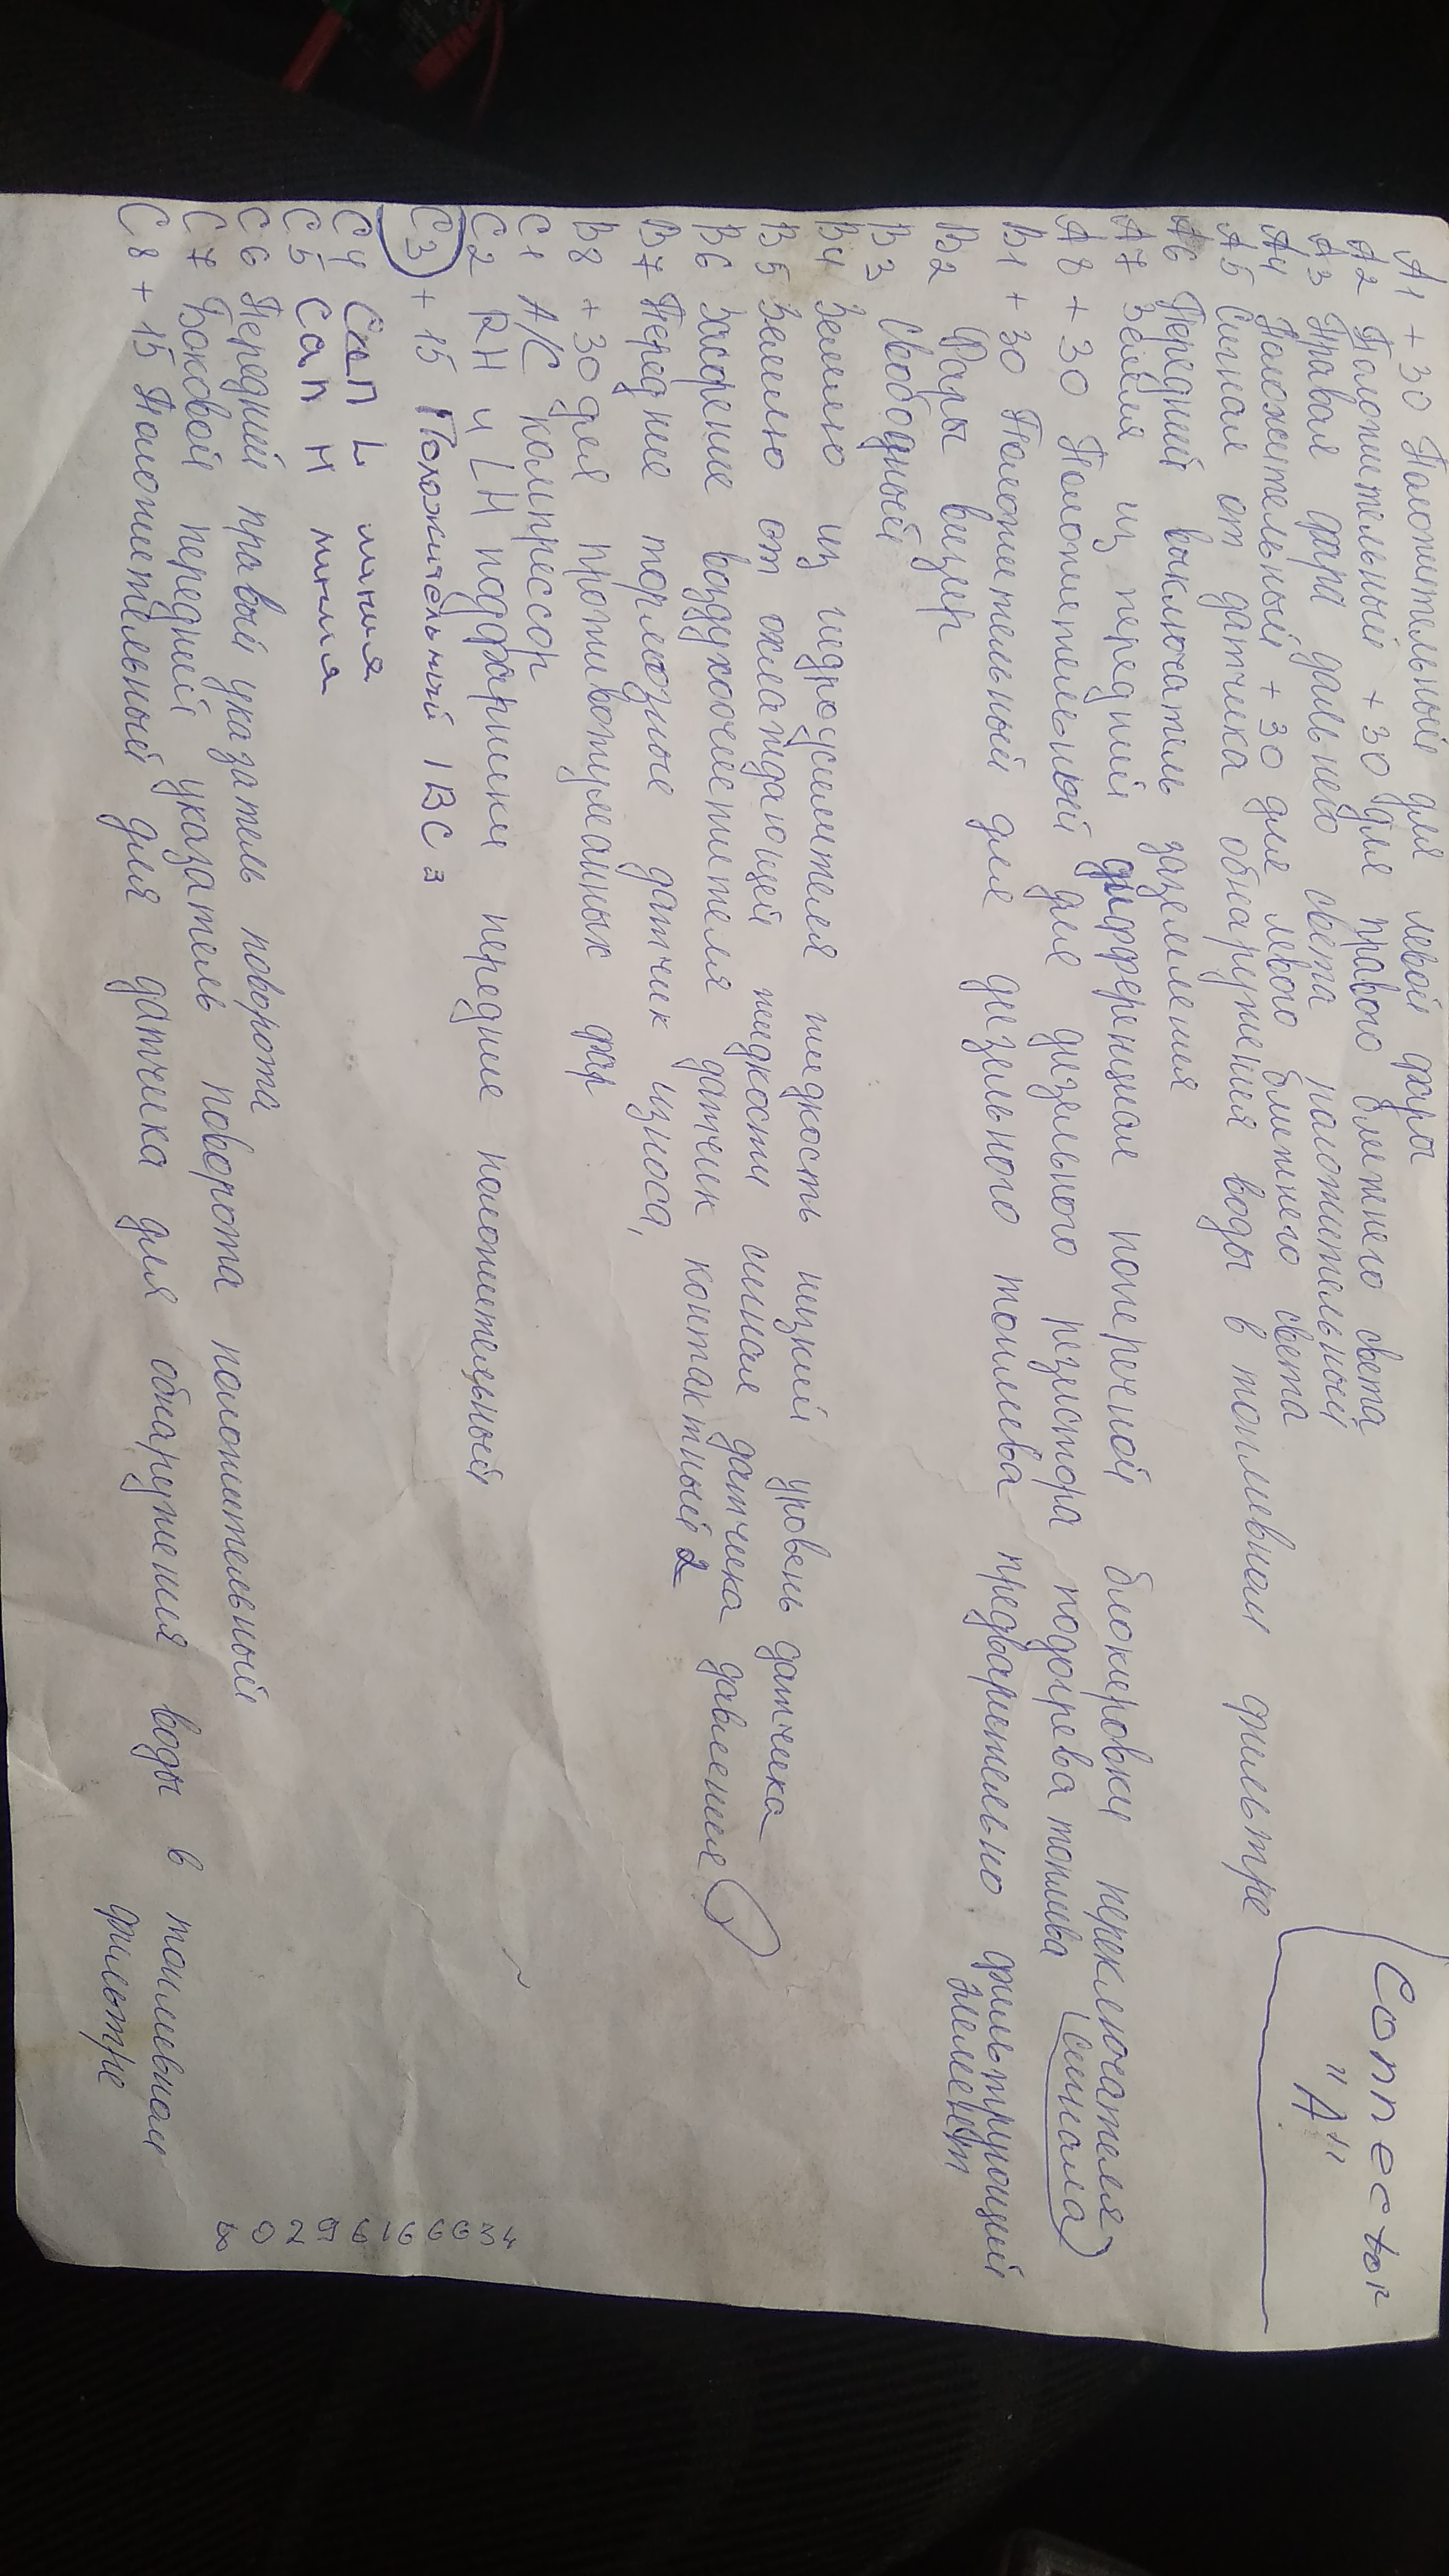 Connector
"А"
А1 + 30 Положительный для левой фары
А2 Положительный + 30 для правого ближнего света
А3 Правая фара дальнего света положительный
А4 Положительный + 30 для левого ближнего света
А5 Сигнал от датчика обнаружения воды в топливном фильтре
А6 Передний выключатель заземления
А7 Земля из передний дифференциал поперечной блокировки переключателя
(сигнала)
А8 + 30 Положительный для дизельного резистора подогрева топлива
В1 + 30 Положительный для дизельного топлива предварительно фильтрующий
элемент
В2 Фары вишер
В3 Свободный
В4 Землю из гидроусилителя жидкость низкий уровень датчика
В5 Землю от охлаждающей жидкости сигнал датчика давления
В6 Засорение воздухоочистителя датчик контактный 2
В7 Передние тормозные датчик износа,
В8 + 30 для противотуманных фар
С1 А/С компрессор
С2 RH и LH подфарники передние положительный
С3 + 15 Положительный IBC 3
С4 Can L линия
С5 Can H линия
С6 Передний правый указатель поворота
С7 Боковой передний указатель поворота положительный
С8 + 15 Положительный для датчика для обнаружения воды в топливном
фильтре
80296166634